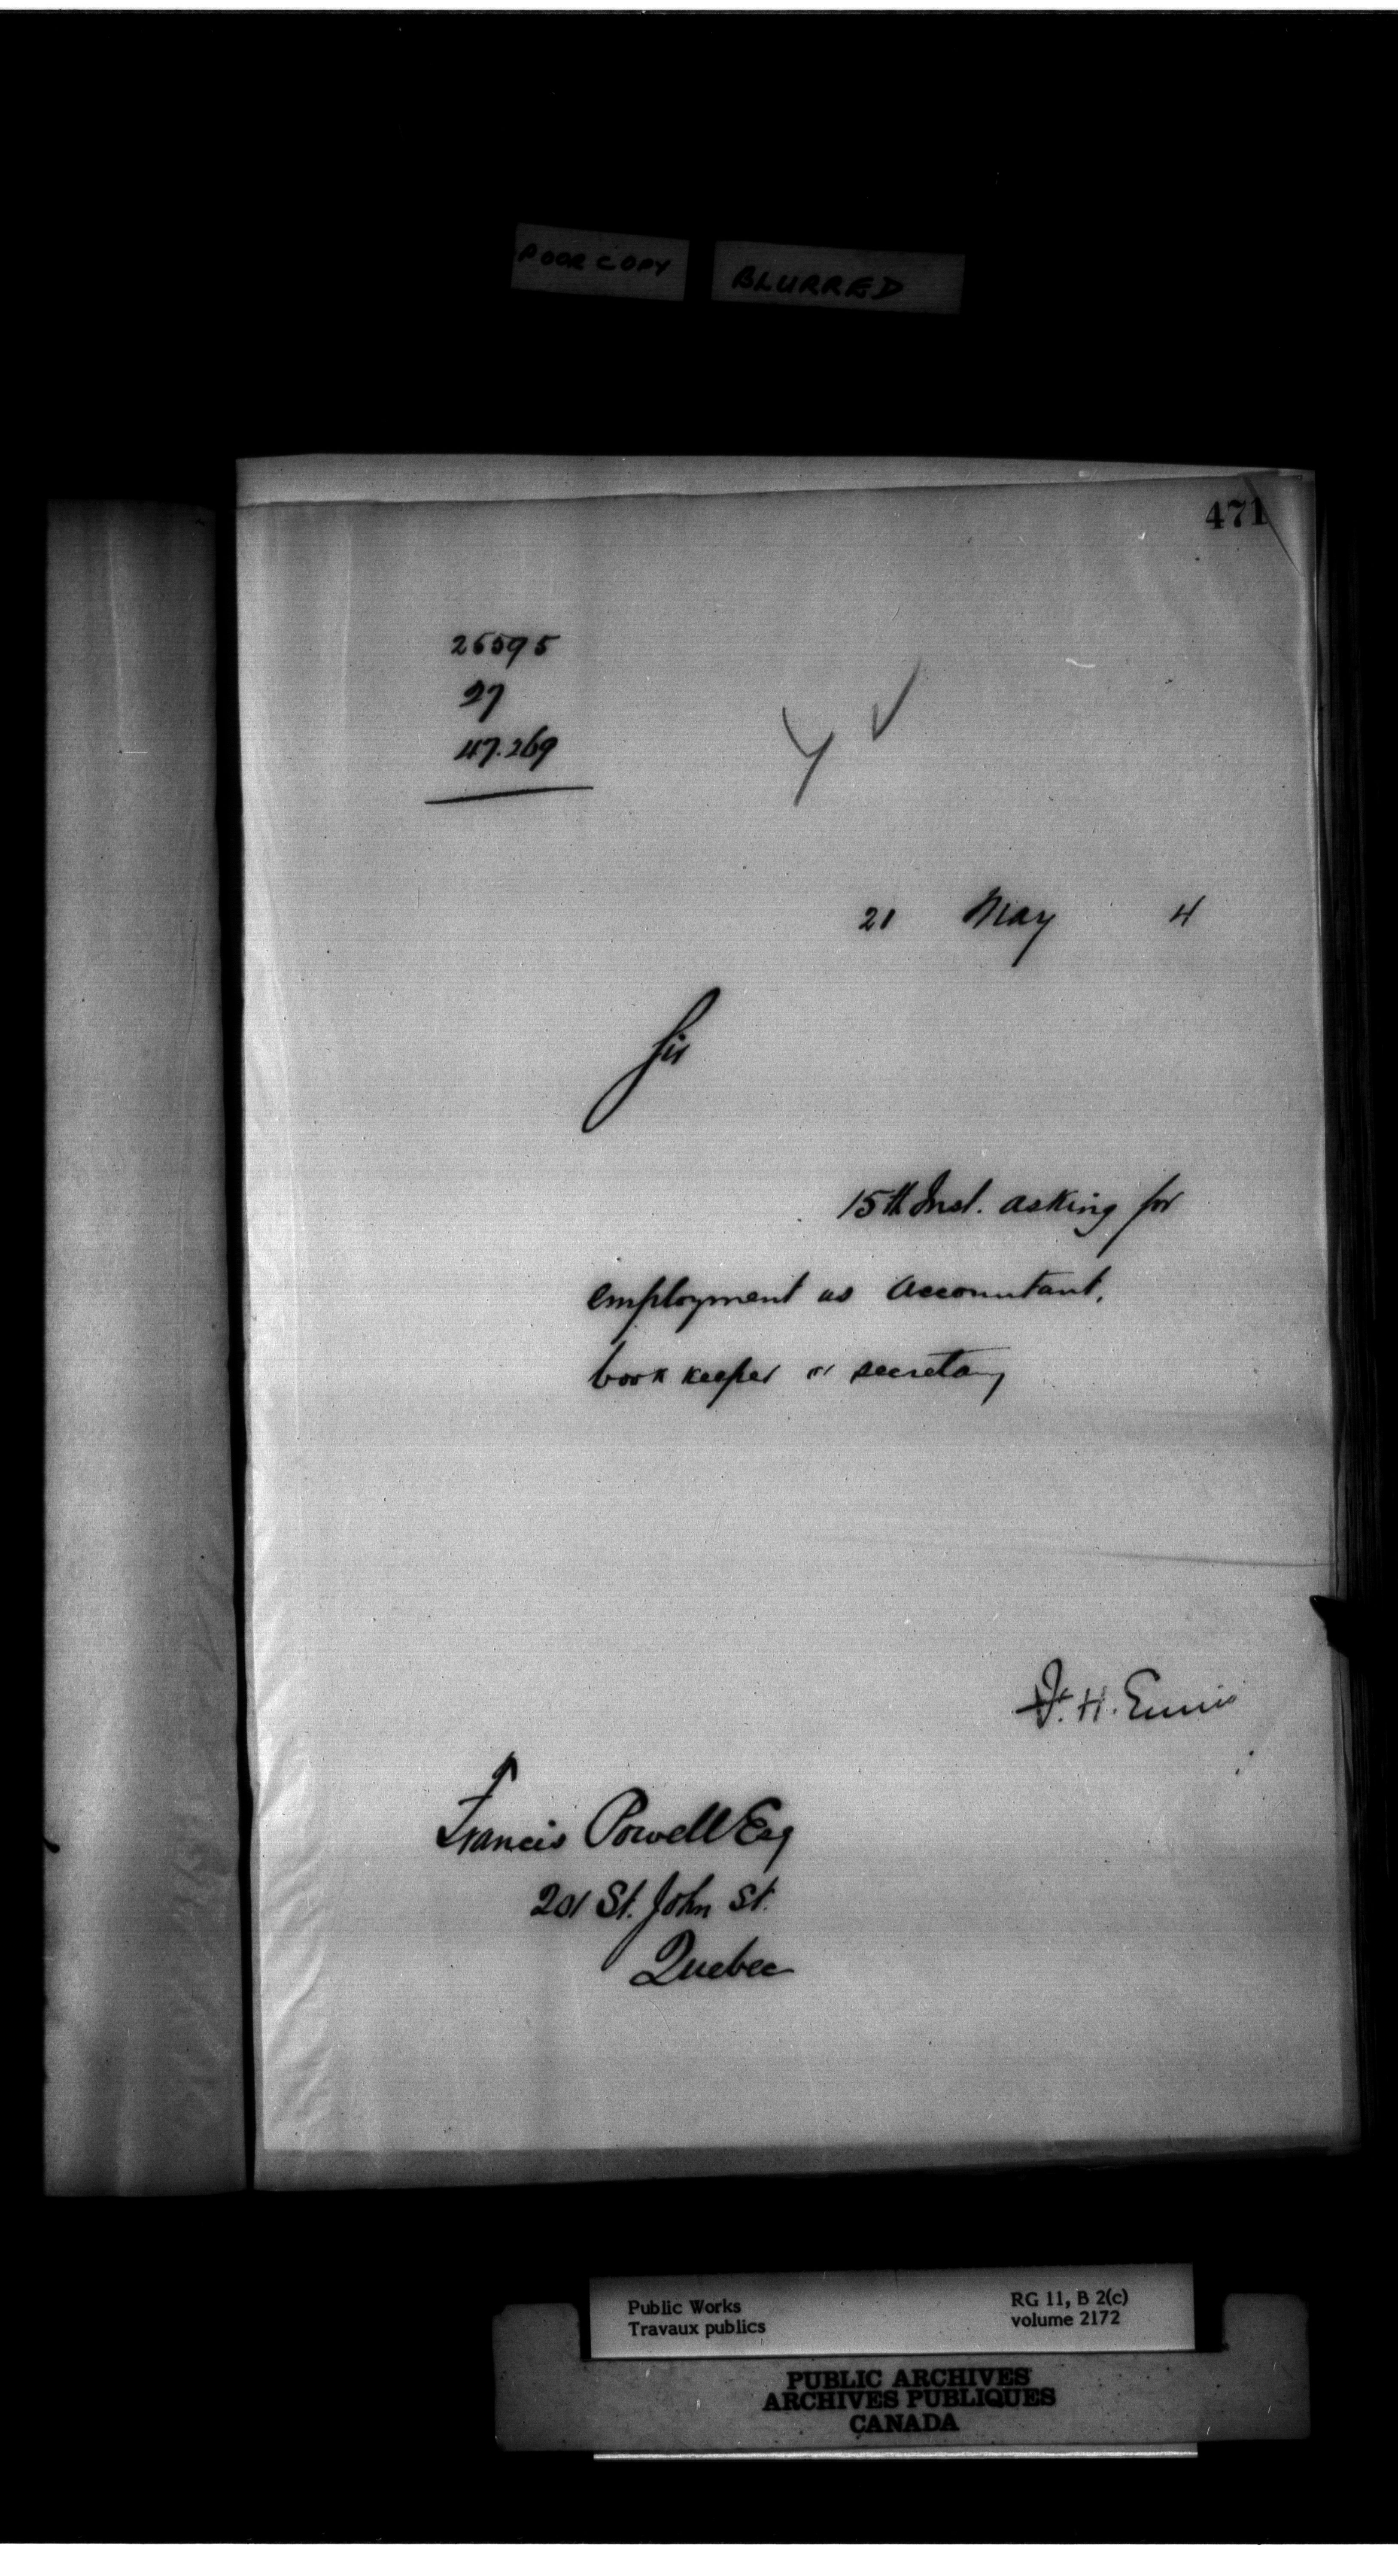 POOR COPY BLURRED
471
26595
27
47.269
21 May 4
Sir
15th Inst. asking for
employment as accountant,
book keeper or secretary
F. H. Ennis
Francis Powell Esq
201 St. John St.
Quebec
Public Works
Travaux publics
RG 11, B 2(c)
volume 2172
PUBLIC ARCHIVES
ARCHIVES PUBLIQUES
CANADA